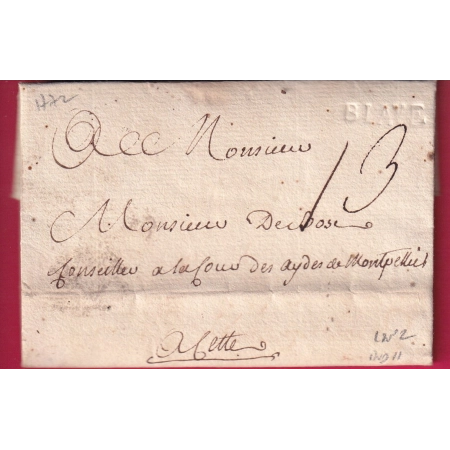 1772
BLAYE
A Monsieur
13
Monsieur Debose
Conseiller a la Cour des aydes de Montpellier
a Cette
L N°2
ind 11